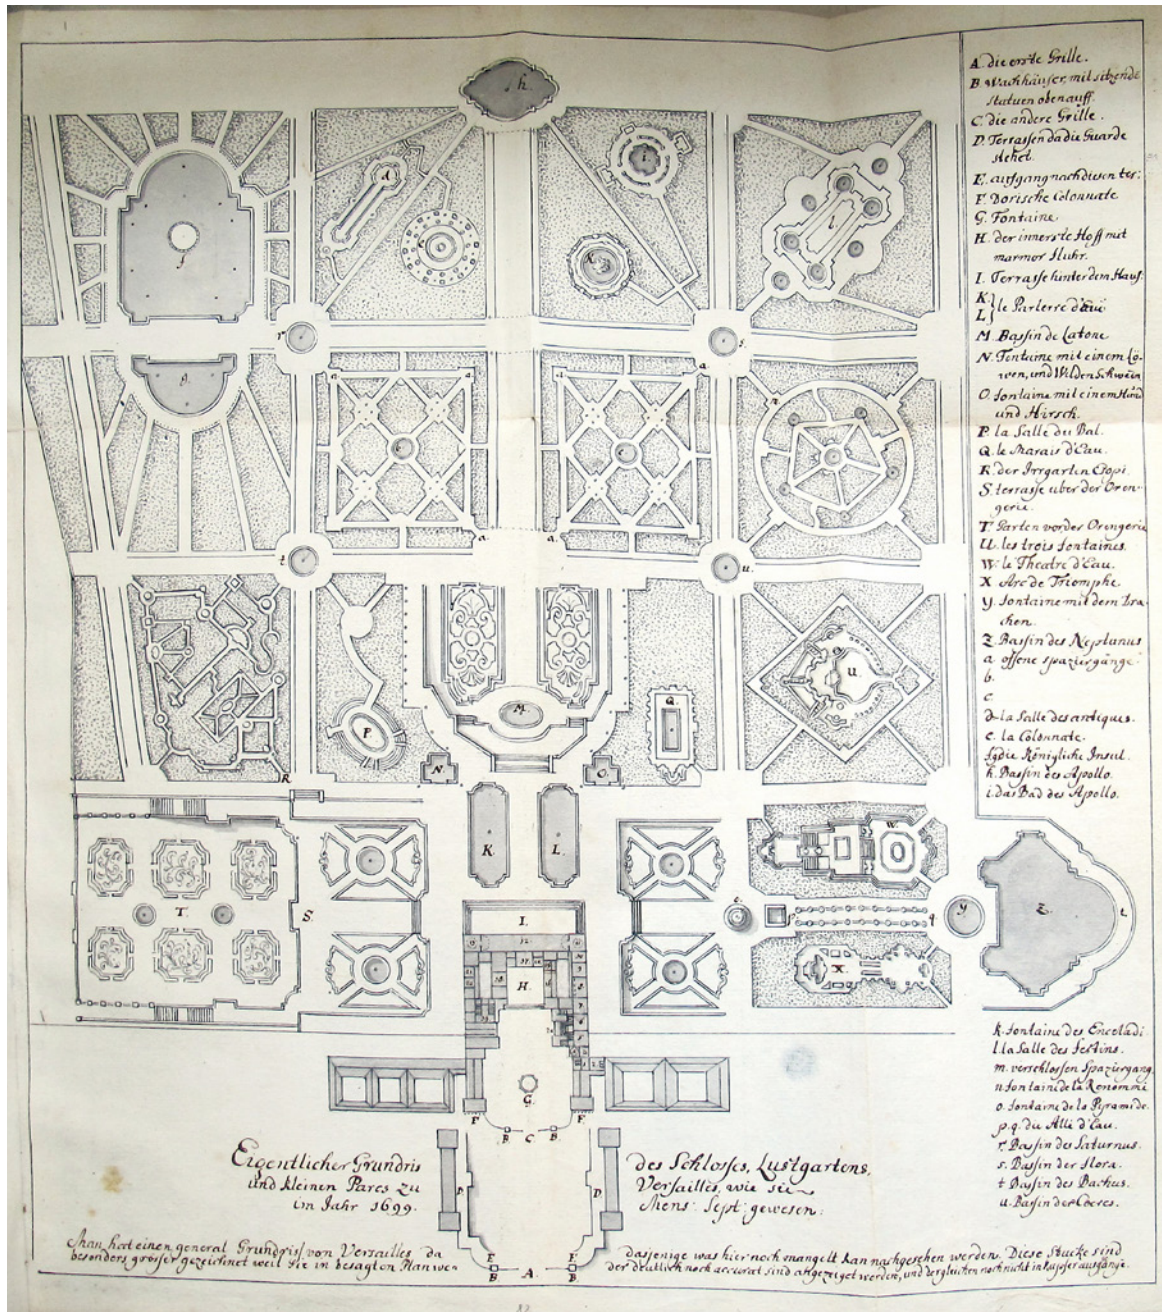 A. die erste Grille.
B. Wachhäuser, mit sitzende
statuen obenauff.
C. die andere Grille.
D. Terrassen da die Guarde
stehet.
E. aufgang nach diesen ter:
F. Dorische Colonnate
G. Fontaine.
H. der innerste Hoff mit
marmor
I. Terrasse hinter dem Hauß.
K.
L. le Parterre d'Eau
M. Bassin de Latone
N. Fontaine mit einem Lö-
wen, und Wilden Schwein
O. fontaine mit einem Hund
und Hirsch.
P. la Salle du Bal.
Q. le Marais d'Eau.
R. der Irrgarten Esopi.
S. terrasse uber der Oren-
gerie.
T. Garten vor der Orengerie
U. les trois fontaines.
W. le Theatre d'Eau.
X Arc de Triomphe
Y. fontaine mit dem Dra-
chen.
Z. Bassin des Neptunus
a offene spaziergänge
b.
c
d. la Salle des antiques.
e. la Colonnate.
f g die Königliche Insul.
h. Bassin des Apollo.
i. das Bad des Apollo.
k. fontaine des Enceladi
l. la Salle des festins.
m. verschlossen Spaziergang.
n fontaine de la Renommé
o. fontaine de la Pyramide.
p. q. die Allé d'Eau.
r. Bassin des Saturnus.
s. Bassin der Flora.
t Bassin des Bachus.
u. Bassin der Ceres.
Eigentlicher Grundris des Schlosses, Lustgartens,
und kleinen Parcs zu Versailles, wie sie
im Jahr 1699. Mens: Sept: gewesen.
Man hat einen general Grundriß von Versailles, da dasjenige was hier noch mangelt kan nachgesehen werden. Diese Stucke sind
besonders grösser gezeichnet weil sie in besagten Plan we der deutlich noch accurat sind angezeiget worden, und dergleichen noch nicht in Kupfer ausgangen.